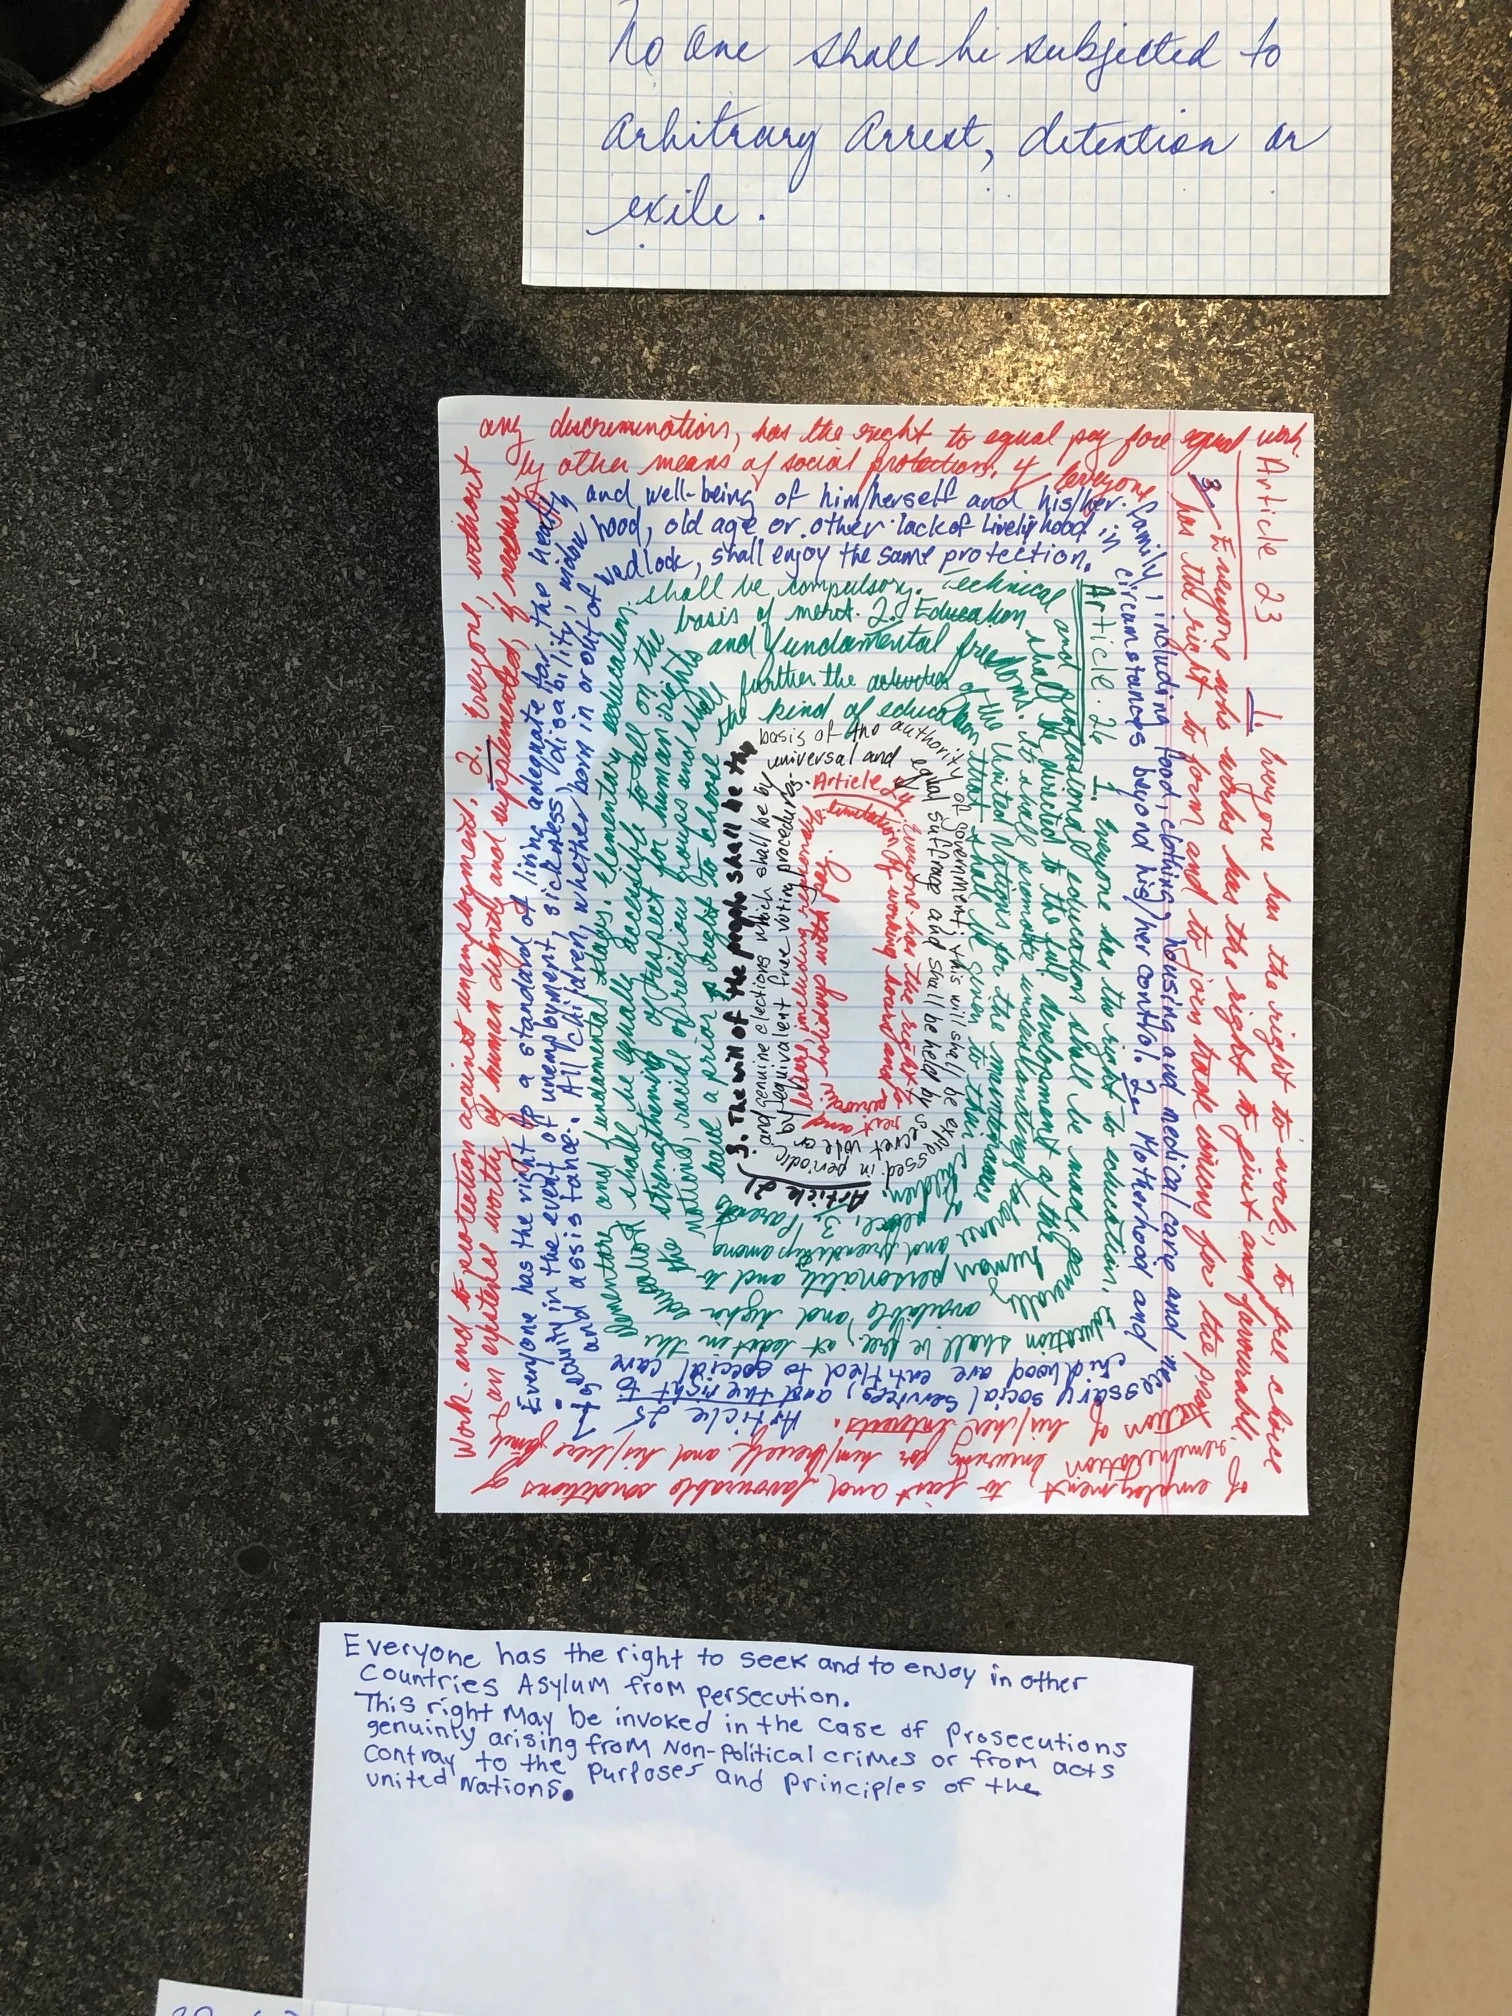 No one shall be subjected to
arbitrary arrest, detention or
exile.
Article 23
1. Everyone has the right to work, to free choice
of employment, to just and favourable conditions of
work. and to protection against unemployment. 2. Everyone, without
any discrimination, has the right to equal pay for equal work.
3. Everyone who works has the right to just and favourable
remuneration ensuring for him/herself and his/her family
an existence worthy of human dignity and supplemented, if necessary
by other means of social protection. 4 Everyone
has the right to form and to join trade unions for the protection
of his/her interests.
Article 25
1. Everyone has the right to a standard of living adequate for the health
and well-being of him/herself and his/her
family, including food, clothing, housing and medical care and necessary
social services, and the right to
security in the event of unemployment, sickness, disability, widow
hood, old age or other lack of livelyhood in
circumstances beyond his/her control. 2. Motherhood and
childhood are entitled to special care
and assistance. All children, whether born in or out of
wedlock, shall enjoy the same protection.
Article 26
1. Everyone has the right to education.
Education shall be free, at least in the
elementary and fundamental stages. Elementary education
shall be compulsory. Technical
and professional education shall be made generally
available and higher education
shall be equally accessible to all on the
basis of merit. 2. Education
shall be directed to the full development of the human
personality and to
strengthening of respect for human rights
and fundamental freedoms.
It shall promote understanding, tolerance
and friendship among
the nations, racial of religious groups and shall
further the activities of
the United Nations for the maintenance
of peace. 3. Parents
have a prior right to choose the
kind of education
that shall be given to their
children.
Article 21
3. The will of the people shall be the
basis of the authority of government; this will shall be expressed in periodic
and genuine elections which shall be by
universal and equal suffrage and shall be held by secret vote or
by equivalent free voting procedures.
Article 24
Everyone has the right to rest and
leisure, including reasonable
limitation of working hours and periodic
holidays with pay.
Everyone has the right to seek and to enjoy in other
Countries Asylum from persecution.
This right may be invoked in the case of Prosecutions
genuinly arising from Non-Political crimes or from acts
Contray to the Purposes and Principles of the
United Nations.